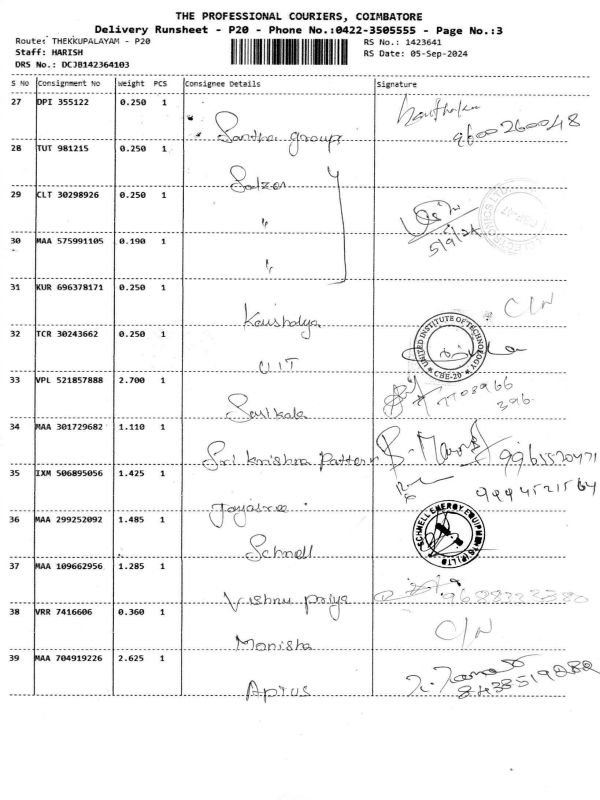 THE PROFESSIONAL COURIERS, COIMBATORE
Delivery Runsheet - P20 - Phone No.:0422-3505555 - Page No.:3
Route: THEKKUPALAYAM - P20
RS No.: 1423641
Staff: HARISH
RS Date: 05-Sep-2024
DRS No.: DCJB142364103
S No Consignment No Weight PCS Consignee Details Signature
27 DPI 355122 0.250 1
Santha groups 9600260048
28 TUT 981215 0.250 1
Salzer
29 CLT 30298926 0.250 1
"
5/9/24
30 MAA 575991105 0.190 1
"
31 KUR 696378171 0.250 1
Kaushalya C/N
32 TCR 30243662 0.250 1
UIT
UNITED INSTITUTE OF TECHNOLOGY
* CBE-20 *
33 VPL 521857888 2.700 1
Sasikala
34 MAA 301729682 1.110 1
Sri krishna Pattern
35 IXM 506895056 1.425 1
Jayasree 9994521564
36 MAA 299252092 1.485 1
Schnell
SCHNELL ENERGY EQUIPMENTS (P) LTD
37 MAA 109662956 1.285 1
Vishnu priya
38 VRR 7416606 0.360 1
Monisha C/N
39 MAA 704919226 2.625 1
Aptus